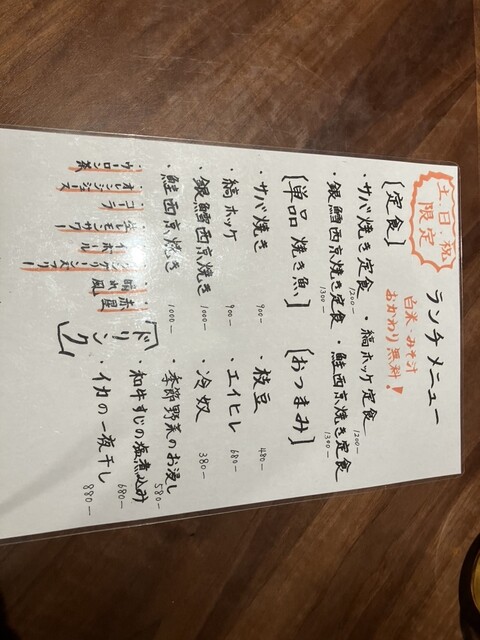 土・日・祝
限定
ランチメニュー
白米・みそ汁
おかわり無料!
[定食]
・サバ焼き定食 1200-
・縞ホッケ定食 1200-
・銀鱈西京焼き定食 1300-
・鮭西京焼き定食 1300-
[単品 焼き魚]
・サバ焼き 900-
・縞ホッケ 900-
・銀鱈西京焼き 1000-
・鮭西京焼き 1000-
[おつまみ]
・枝豆 480-
・エイヒレ 680-
・冷奴 380-
・季節野菜のお浸し 580-
・和牛すじの塩煮込み 680-
・イカの一夜干し 880-
[ドリンク]
・赤星
・ハイボール
・生レモンサワー
・コーラ
・オレンジジュース
・ウーロン茶